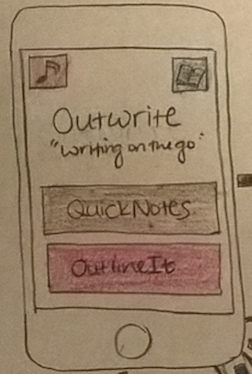 Outwrite
"writing on the go"
QuickNotes
OutlineIt